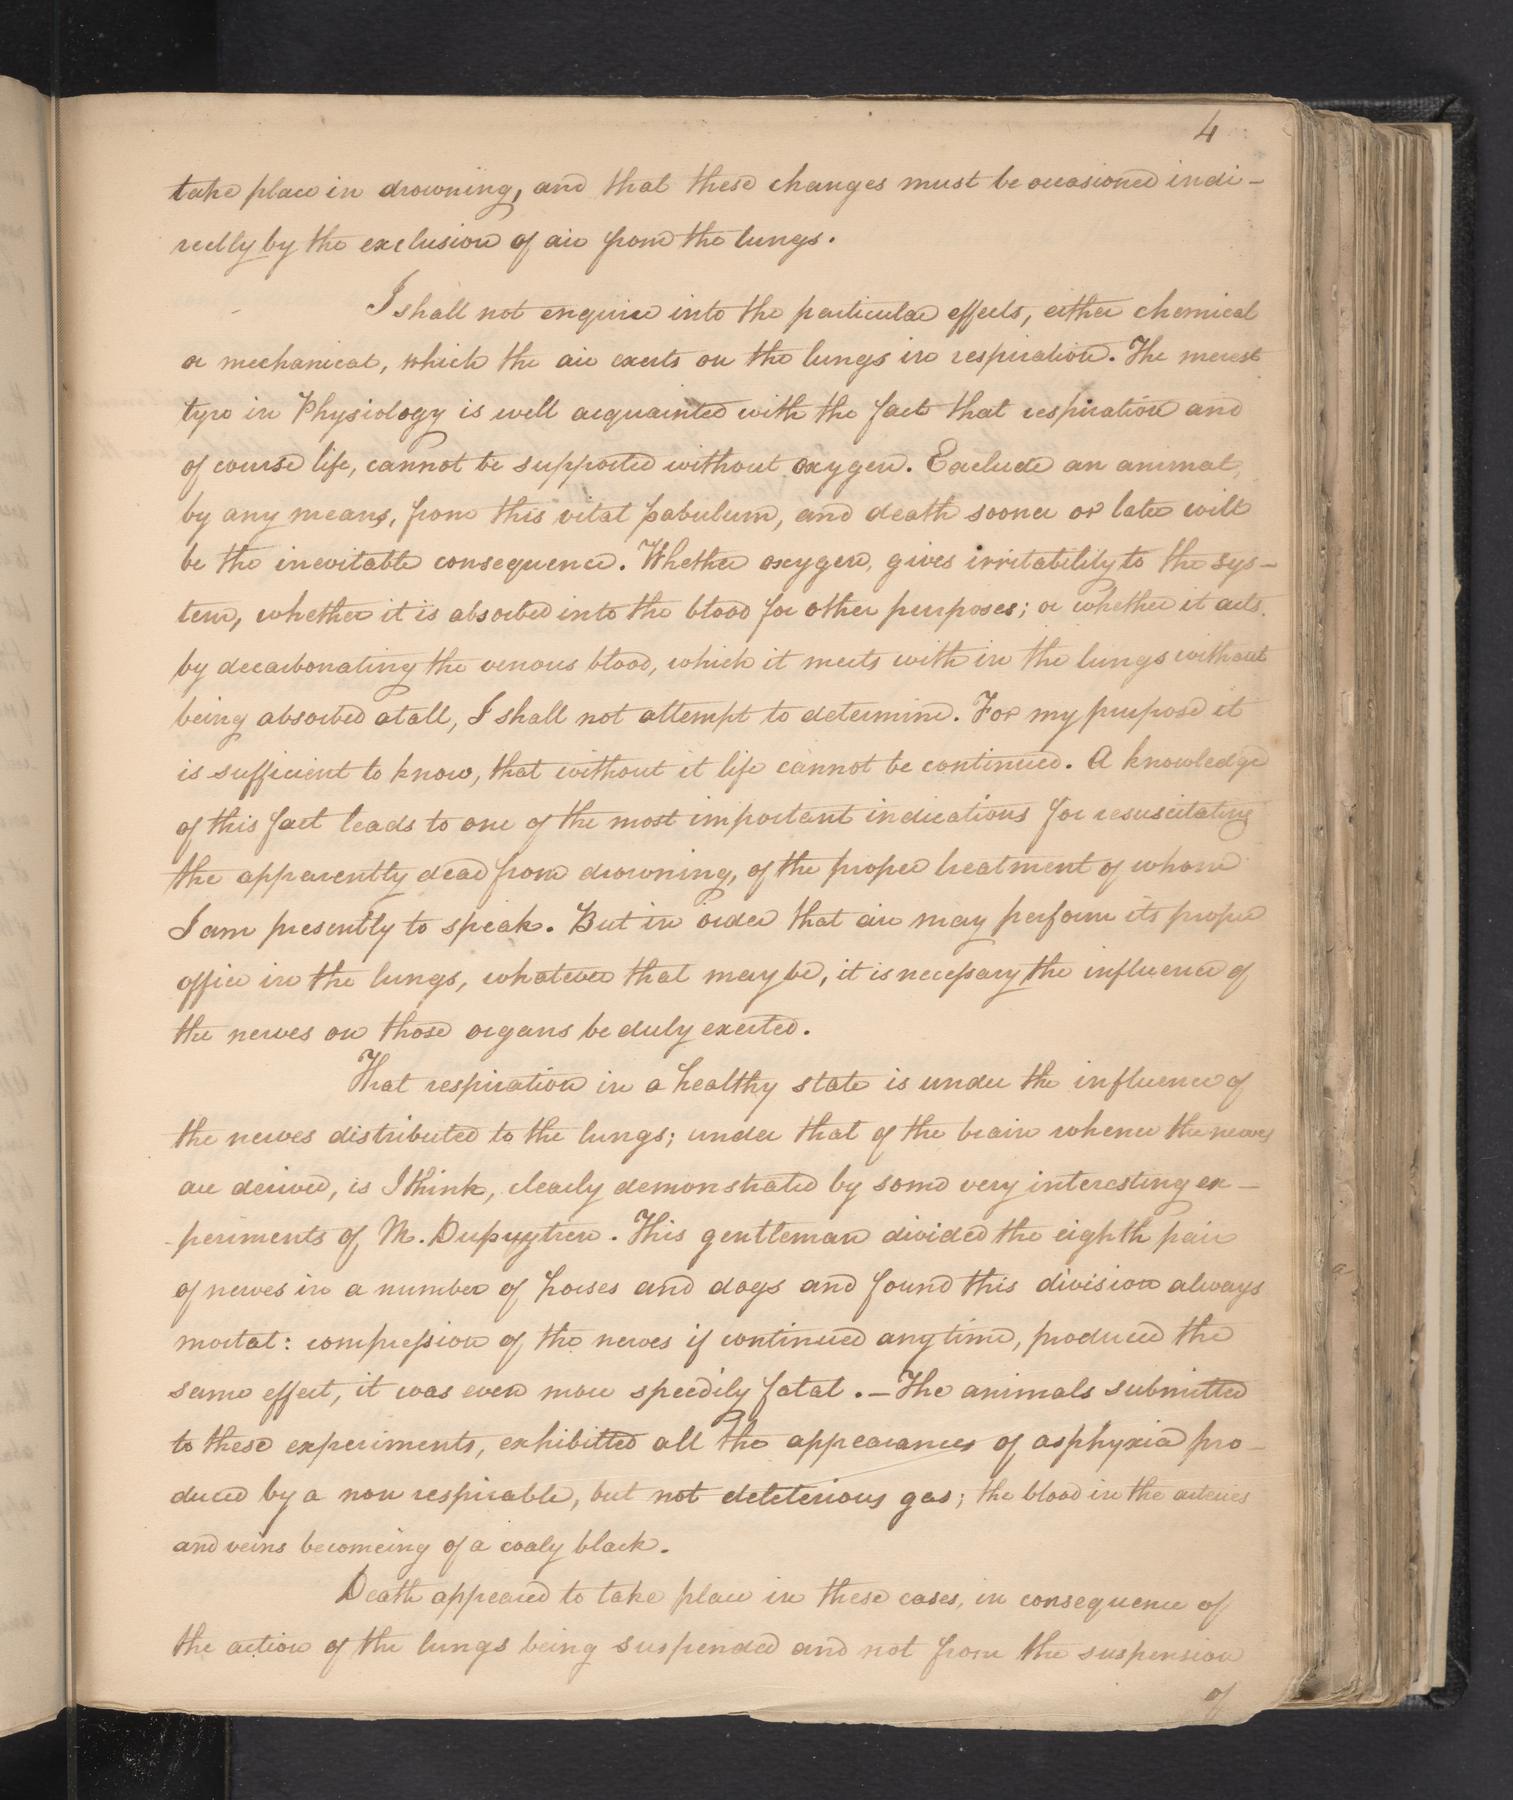 4
take place in drowning, and that these changes must be occasioned indi-
rectly by the exclusion of air from the lungs.
I shall not enquire into the particular effects, either chemical
or mechanical, which the air exerts on the lungs in respiration. The merest
tyro in Physiology is well acquainted with the fact that respiration and
of course life, cannot be supported without oxygen. Exclude an animal,
by any means, from this vital pabulum, and death sooner or later will
be the inevitable consequence. Whether oxygen, gives irritability to the sys-
tem, whether it is absorbed into the blood for other purposes; or whether it acts
by decarbonating the venous blood, which it meets with in the lungs without
being absorbed atall, I shall not attempt to determine. For my purpose it
is sufficient to know, that without it life cannot be continued. A knowledge
of this fact leads to one of the most important indications for resuscitating
the apparently dead from drowning, of the proper treatment of whom
I am presently to speak. But in order that air may perform its proper
office in the lungs, whatever that may be, it is necessary the influence of
the nerves on those organs be duly exerted.
That respiration in a healthy state is under the influence of
the nerves distributed to the lungs; under that of the brain whence the nerves
are derived, is I think, clearly demonstrated by some very interesting ex-
periments of M. Dupuytren. This gentleman divided the eighth pair
of nerves in a number of horses and dogs and found this division always
mortal: compression of the nerves if continued any time, produced the
same effect, it was even more speedily fatal. – The animals submitted
to these experiments, exhibitted all the appearances of asphyxia pro-
duced by a non respirable, but not deleterious gas; the blood in the arteries
and veins becomeing of a coaly black.
Death appeared to take place in these cases, in consequence of
the action of the lungs being suspended and not from the suspension
of